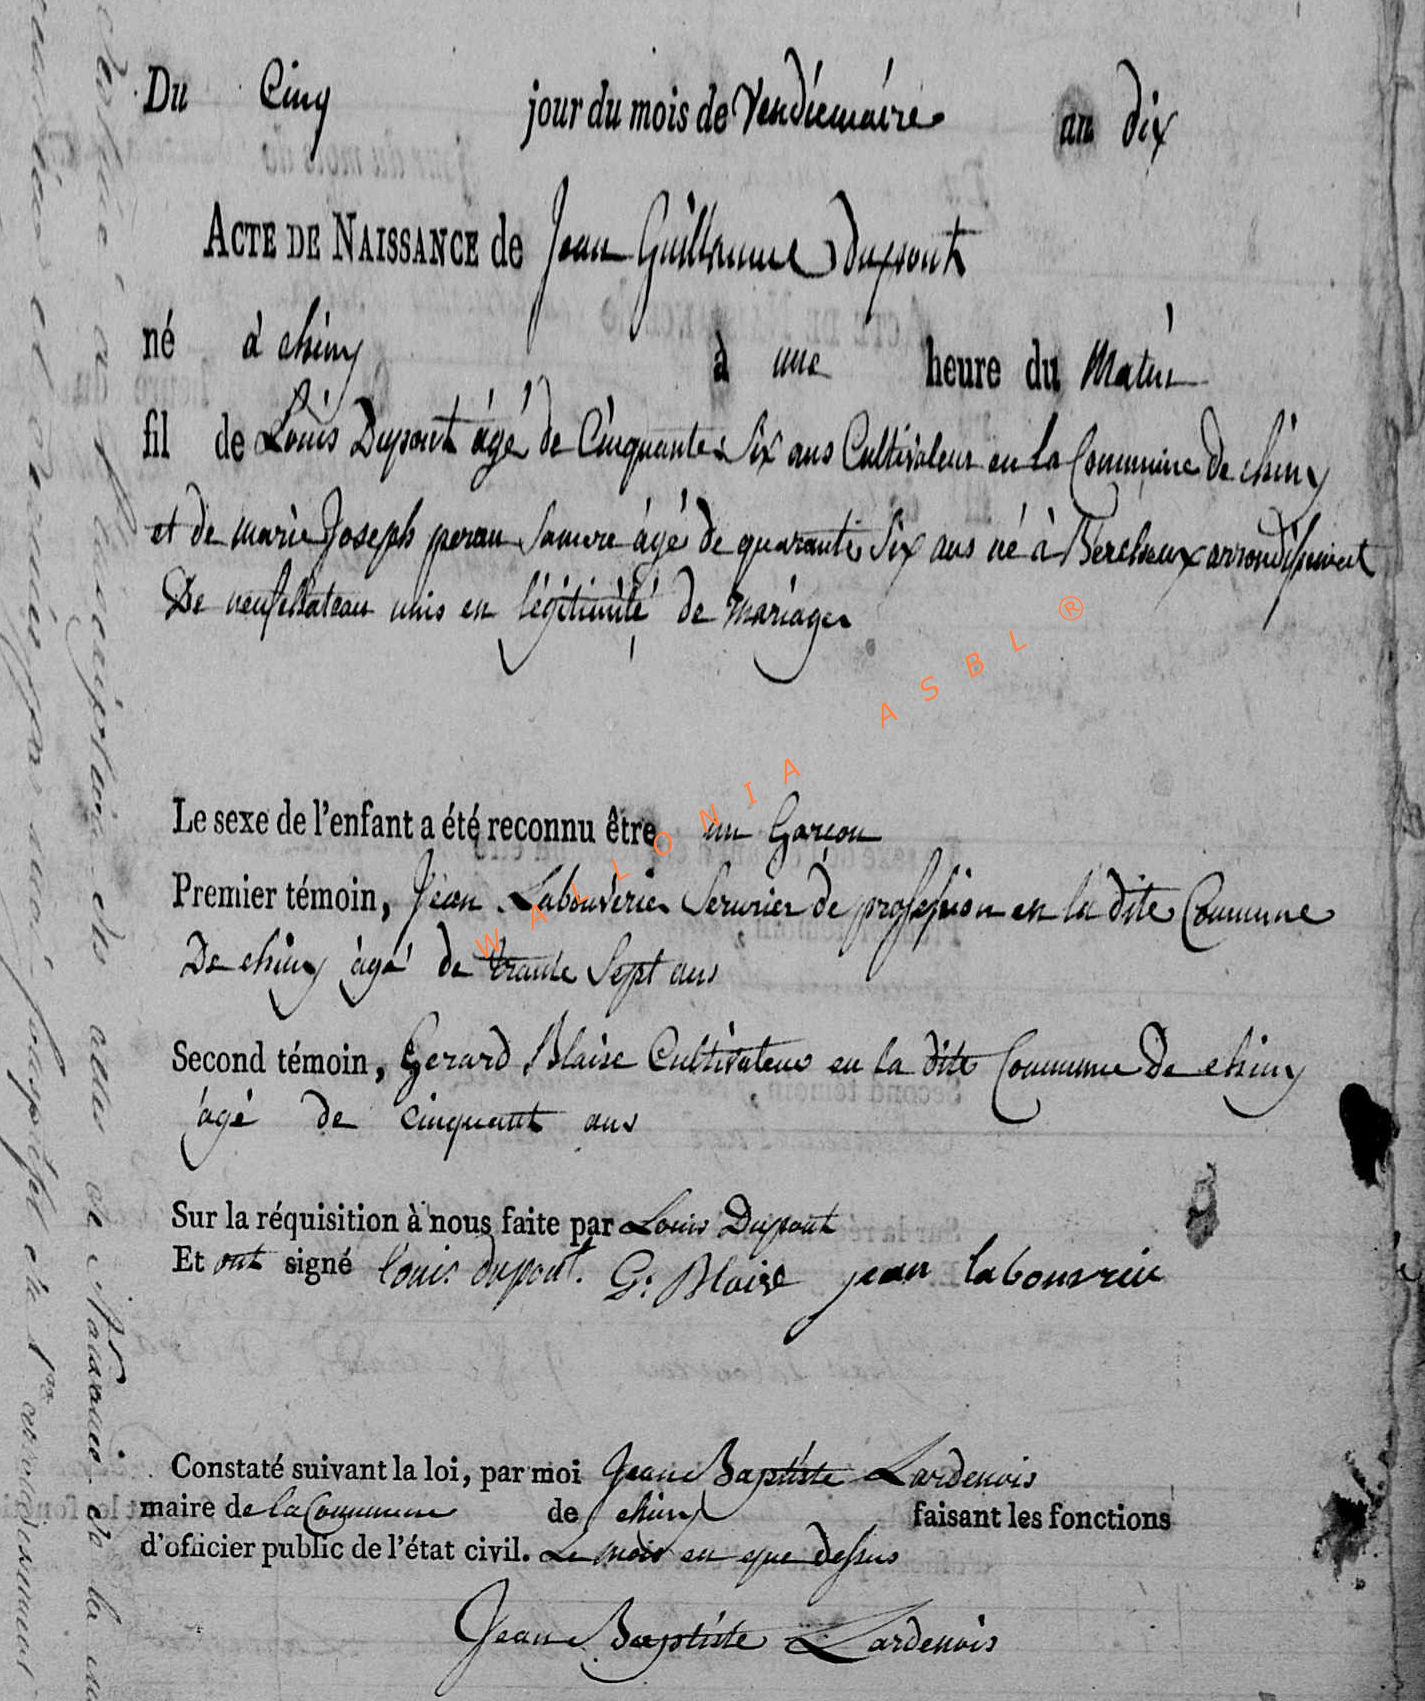 Du Cinq jour du mois de Vendiemaire an dix
ACTE DE NAISSANCE de Jean Guillaume dupont
né à chiny à une heure du Matin
fil de Louis Dupont âgé de Cinquante Six ans Cultivateur en la Commune de chiny
et de marie Joseph âgé de quarante Six ans né à Bercheux arrondissement
De neufchateau unis en légitimité de mariage
Le sexe de l'enfant a été reconnu être un Garçon
Premier témoin, Jean Labouverie Serurier de profession en la dite Commune
De chiny âgé de trante Sept ans
Second témoin, Gerard Blaise Cultivateur en la dite Commune De chiny
âgé de cinquant ans
Sur la réquisition à nous faite par Louis Dupont
Et ont signé louis dupont. G: Blaise jean labouverie
Constaté suivant la loi, par moi Jean Baptiste Lardenois
maire de la Commune de chiny faisant les fonctions
d'officier public de l'état civil. Le mois en que dessus
Jean Baptiste Lardenois
WALLONIA ASBL ®